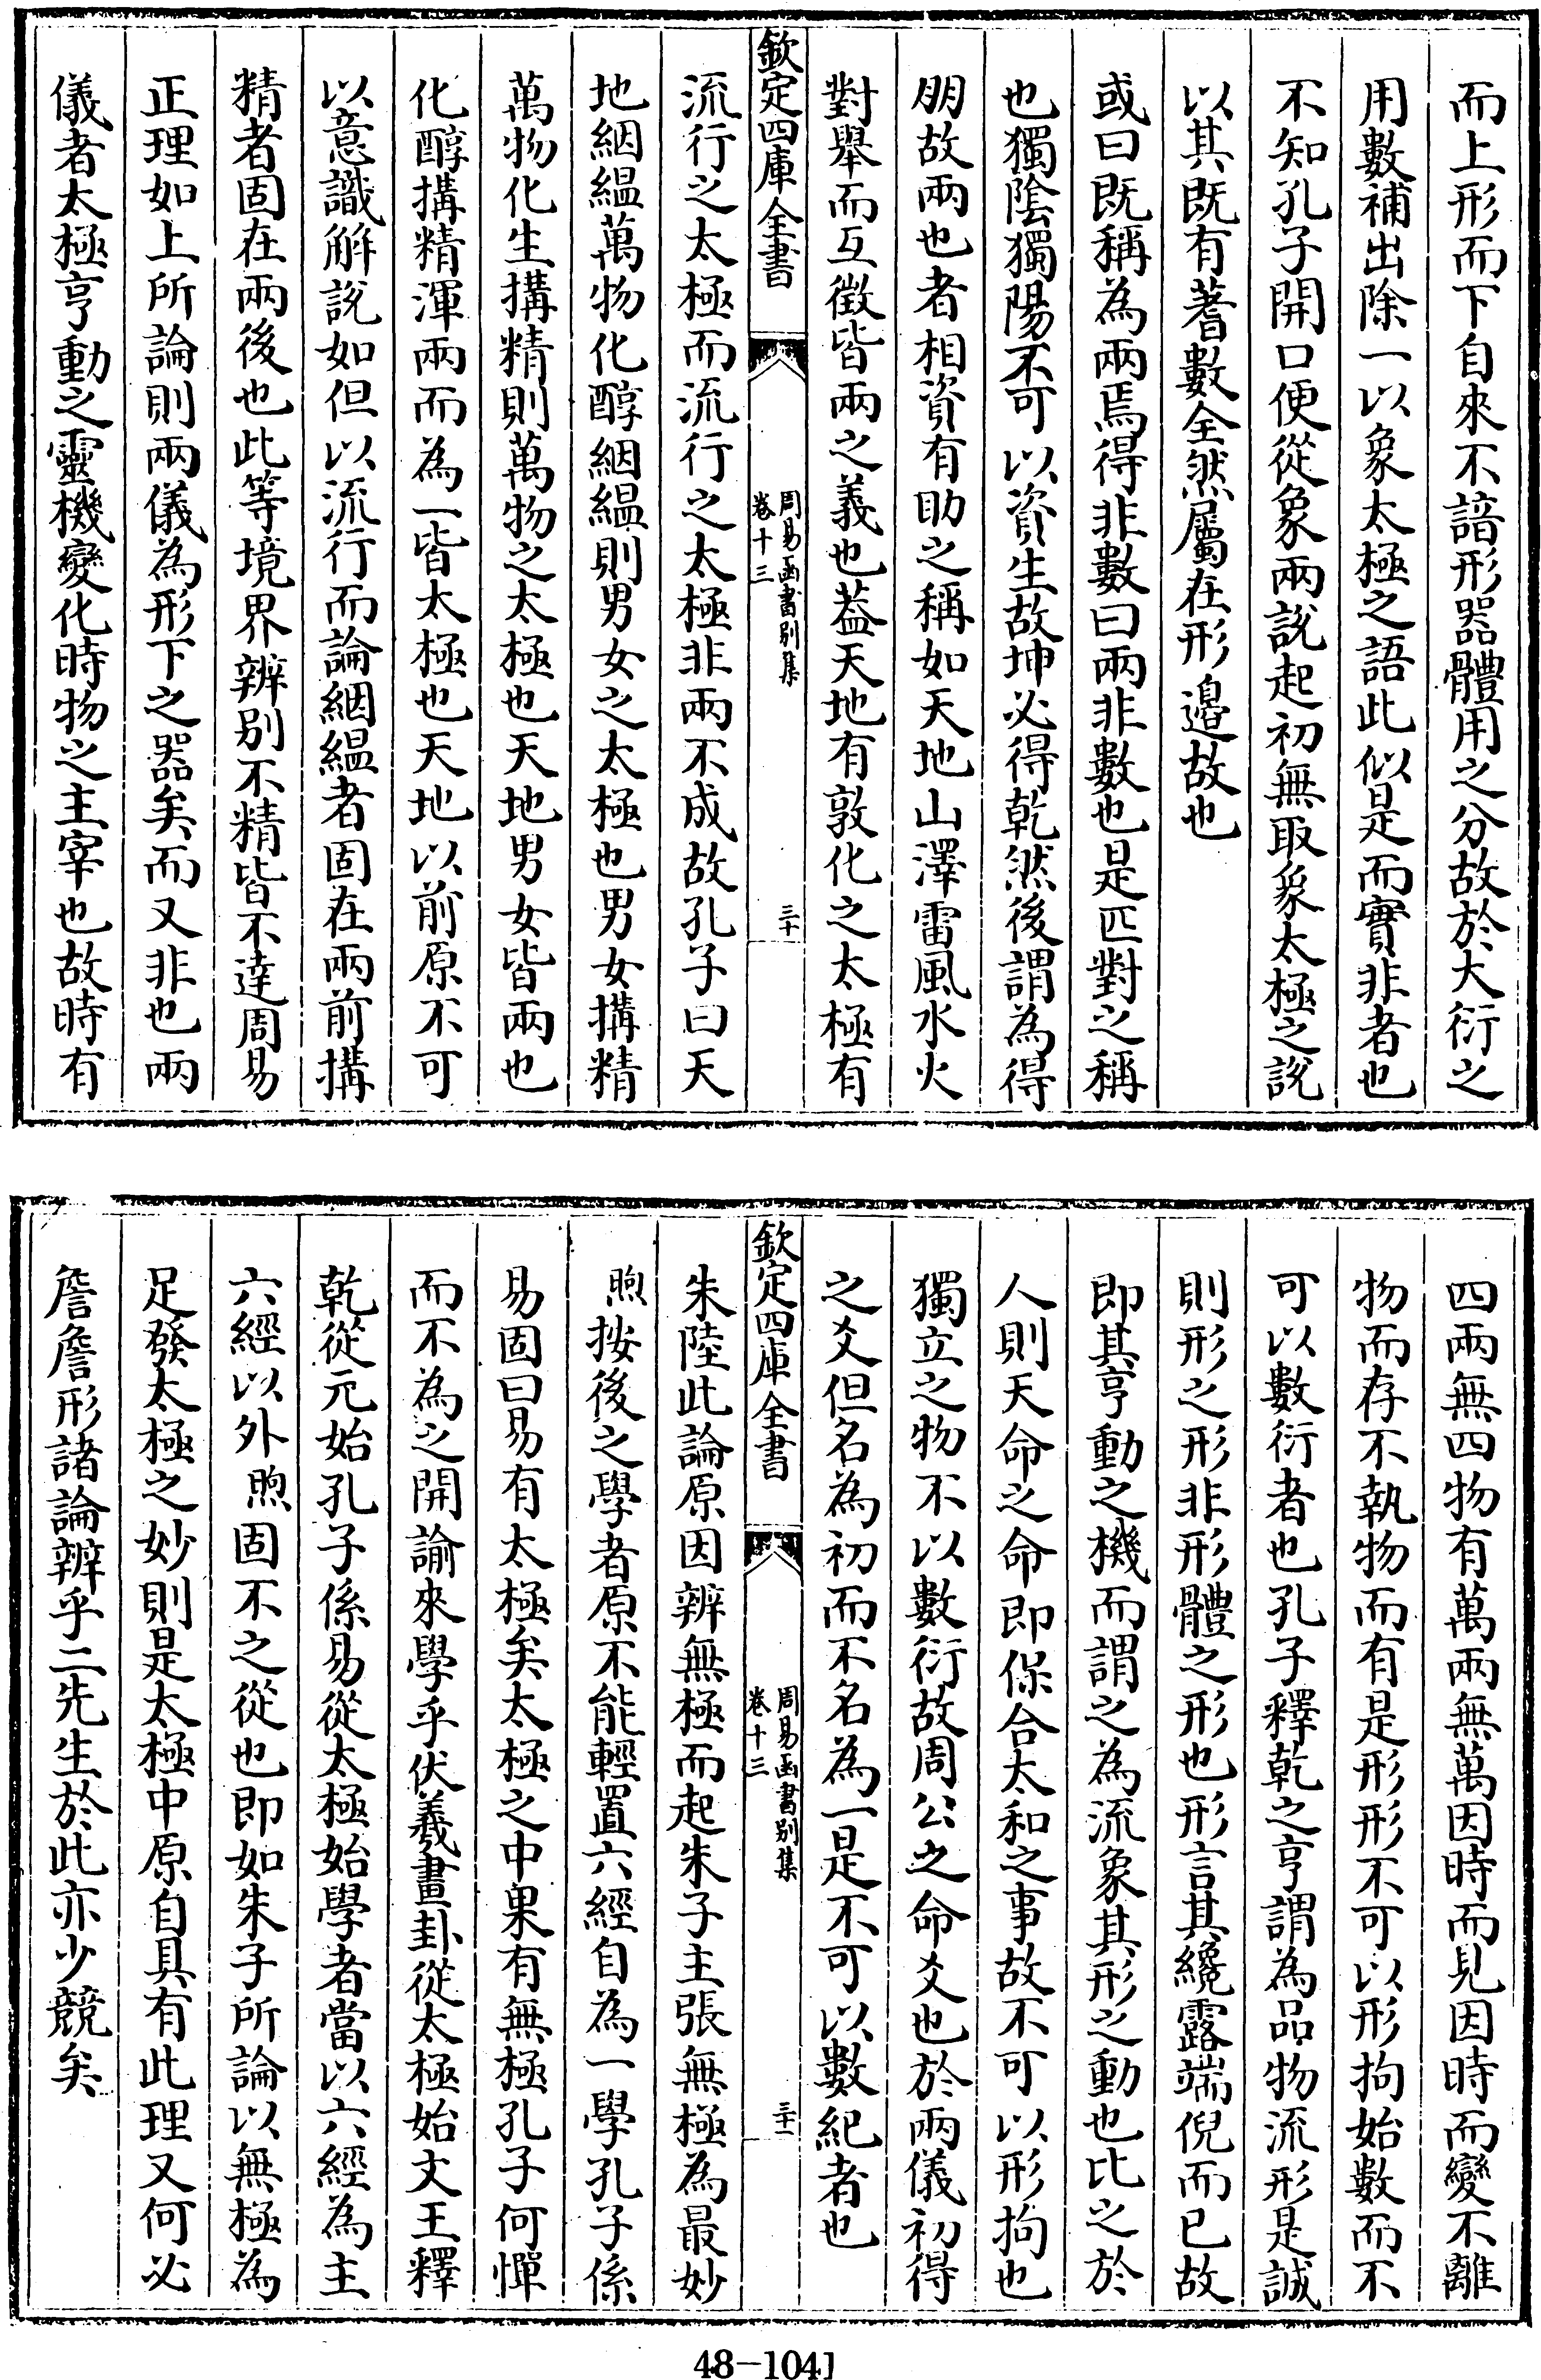 而上形而下自來不諳形器體用之分故於大衍之
用數補出除一以象太極之語此似是而實非者也
不知孔子開口便從象兩說起初無取象太極之說
以其既有蓍數全然屬在形邉故也
或曰既稱為兩焉得非數曰兩非數也是匹對之稱
也獨陰獨陽不可以資生故坤必得乾然後謂為得
朋故兩也者相資有助之稱如天地山澤雷風水火
對舉而互徵皆兩之義也葢天地有敦化之太極有
欽定四庫全書
周易函書别集
卷十三
三十
流行之太極而流行之太極非兩不成故孔子曰天
地絪緼萬物化醇絪緼則男女之太極也男女搆精
萬物化生搆精則萬物之太極也天地男女皆兩也
化醇搆精渾兩而為一皆太極也天地以前原不可
以意識解說如但以流行而論絪緼者固在兩前搆
精者固在兩後也此等境界辨别不精皆不達周易
正理如上所論則兩儀為形下之器矣而又非也兩
儀者太極亨動之靈機變化時物之主宰也故時有
四兩無四物有萬兩無萬因時而見因時而變不離
物而存不執物而有是形形不可以形拘始數而不
可以數衍者也孔子釋乾之亨謂為品物流形是誠
則形之形非形體之形也形言其纔露端倪而已故
即其亨動之機而謂之為流象其形之動也比之於
人則天命之命即保合太和之事故不可以形拘也
獨立之物不以數衍故周公之命爻也於兩儀初得
之爻但名為初而不名為一是不可以數紀者也
欽定四庫全書
周易函書别集
卷十三
三十一
朱陸此論原因辨無極而起朱子主張無極為最妙
煦按後之學者原不能輕置六經自為一學孔子係
易固曰易有太極矣太極之中果有無極孔子何憚
而不為之開諭來學乎伏羲畫卦從太極始文王釋
乾從元始孔子係易從太極始學者當以六經為主
六經以外煦固不之從也即如朱子所論以無極為
足發太極之妙則是太極中原自具有此理又何必
詹詹形諸論辨乎二先生於此亦少競矣
48-1041